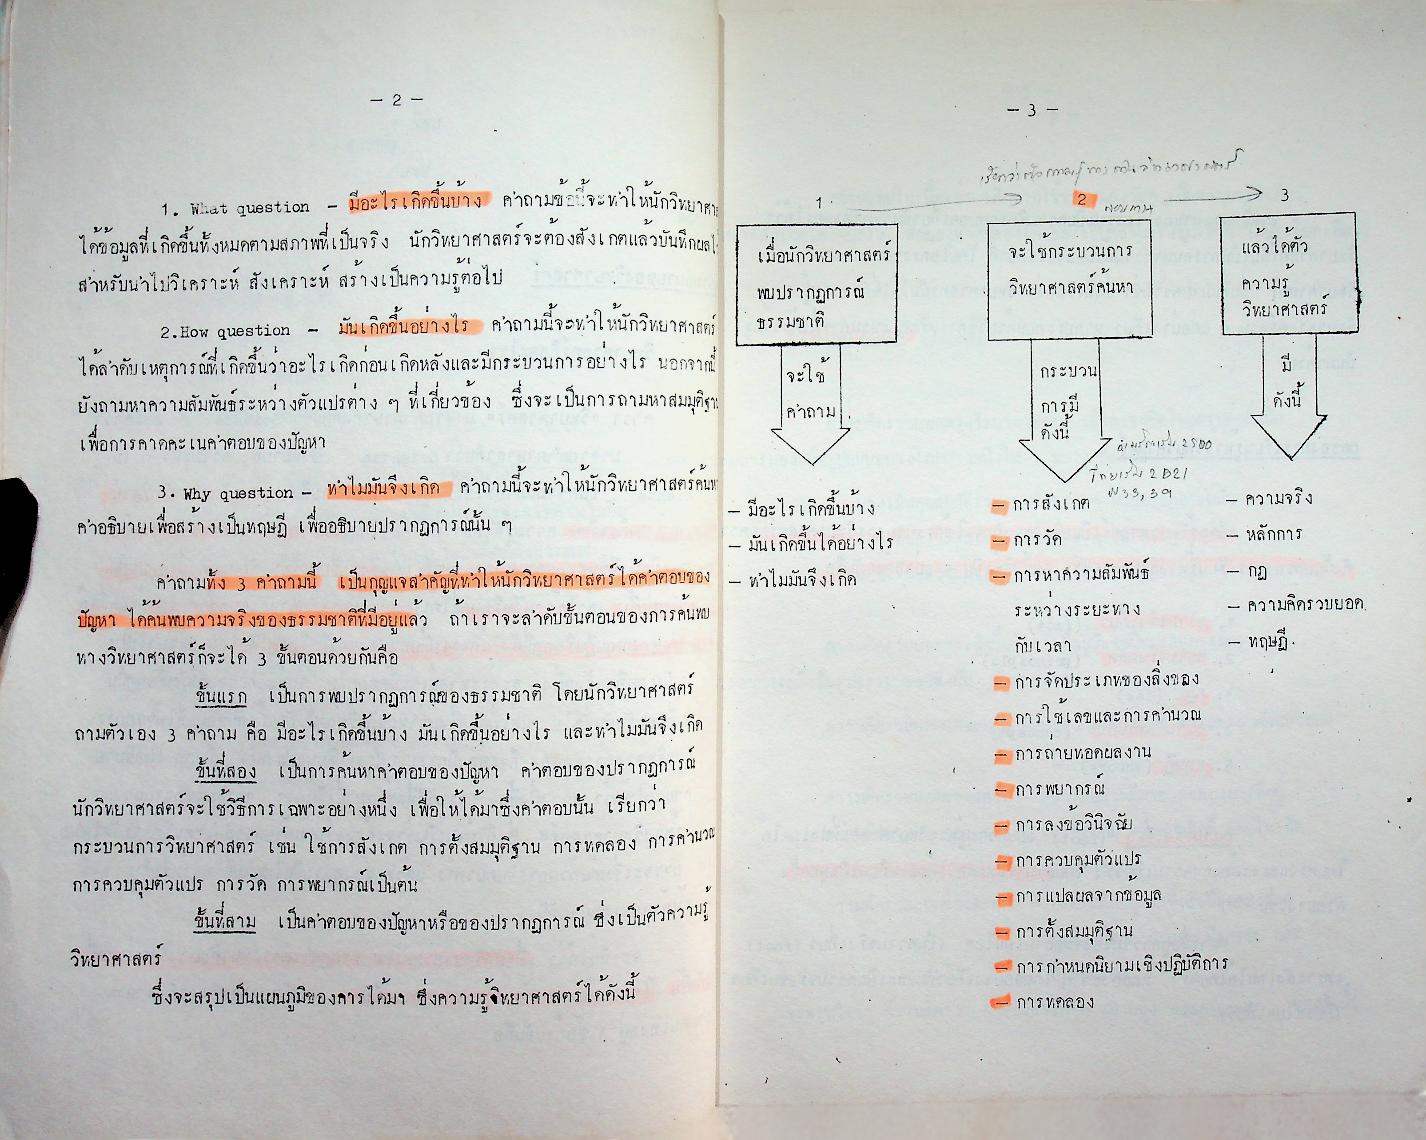 - 2 -
1. What question - มีอะไรเกิดขึ้นบ้าง คำถามข้อนี้จะทำให้นักวิทยาศา
ได้ข้อมูลที่เกิดขึ้นทั้งหมดตามสภาพที่เป็นจริง นักวิทยาศาสตร์จะต้องสังเกตแล้วบันทึกผลไ
สำหรับนำไปวิเคราะห์ สังเคราะห์ สร้างเป็นความรู้ต่อไป
2.How question - มันเกิดขึ้นอย่างไร คำถามนี้จะทำให้นักวิทยาศาสตร์
ได้ลำดับเหตุการณ์ที่เกิดขึ้นว่าอะไรเกิดก่อนเกิดหลังและมีกระบวนการอย่างไร นอกจากนี้
ยังถามหาความสัมพันธ์ระหว่างตัวแปรต่าง ๆ ที่เกี่ยวข้อง ซึ่งจะเป็นการถามหาสมมุติฐาน
เพื่อการคาดคะเนคำตอบของปัญหา
3. Why question - ทำไมมันจึงเกิด คำถามนี้จะทำให้นักวิทยาศาสตร์ค้นห
คำอธิบายเพื่อสร้างเป็นทฤษฎี เพื่ออธิบายปรากฏการณ์นั้น ๆ
คำถามทั้ง 3 คำถามนี้ เป็นกุญแจสำคัญที่ทำให้นักวิทยาศาสตร์ได้คำตอบของ
ปัญหา ได้ค้นพบความจริงของธรรมชาติที่มีอยู่แล้ว ถ้าเราจะลำดับขั้นตอนของการค้นพบ
ทางวิทยาศาสตร์ก็จะได้ 3 ขั้นตอนด้วยกันคือ
ขั้นแรก เป็นการพบปรากฏการณ์ของธรรมชาติ โดยนักวิทยาศาสตร์
ถามตัวเอง 3 คำถาม คือ มีอะไรเกิดขึ้นบ้าง มันเกิดขึ้นอย่างไร และทำไมมันจึงเกิด
ขั้นที่สอง เป็นการค้นหาคำตอบของปัญหา คำตอบของปรากฏการณ์
นักวิทยาศาสตร์จะใช้วิธีการเฉพาะอย่างหนึ่ง เพื่อให้ได้มาซึ่งคำตอบนั้น เรียกว่า
กระบวนการวิทยาศาสตร์ เช่น ใช้การสังเกต การตั้งสมมุติฐาน การทดลอง การคำนวณ
การควบคุมตัวแปร การวัด การพยากรณ์เป็นต้น
ขั้นที่สาม เป็นคำตอบของปัญหาหรือของปรากฏการณ์ ซึ่งเป็นตัวความรู้
วิทยาศาสตร์
ซึ่งจะสรุปเป็นแผนภูมิของการได้มา ซึ่งความรู้วิทยาศาสตร์ได้ดังนี้
- 3 -
1
2
3
เมื่อนักวิทยาศาสตร์
พบปรากฏการณ์
ธรรมชาติ
จะใช้
คำถาม
- มีอะไรเกิดขึ้นบ้าง
- มันเกิดขึ้นได้อย่างไร
- ทำไมมันจึงเกิด
จะใช้กระบวนการ
วิทยาศาสตร์ค้นหา
กระบวน
การมี
ดังนี้
2500
2021
- การสังเกต
- การวัด
- การหาความสัมพันธ์
ระหว่างระยะทาง
กับเวลา
- การจัดประเภทของสิ่งของ
- การใช้เลขและการคำนวณ
- การถ่ายทอดผลงาน
- การพยากรณ์
- การลงข้อวินิจฉัย
- การควบคุมตัวแปร
- การแปลผลจากข้อมูล
- การตั้งสมมุติฐาน
- การกำหนดนิยามเชิงปฏิบัติการ
- การทดลอง
แล้วได้ตัว
ความรู้
วิทยาศาสตร์
มี
ดังนี้
- ความจริง
- หลักการ
- กฎ
- ความคิดรวบยอด
- ทฤษฎี